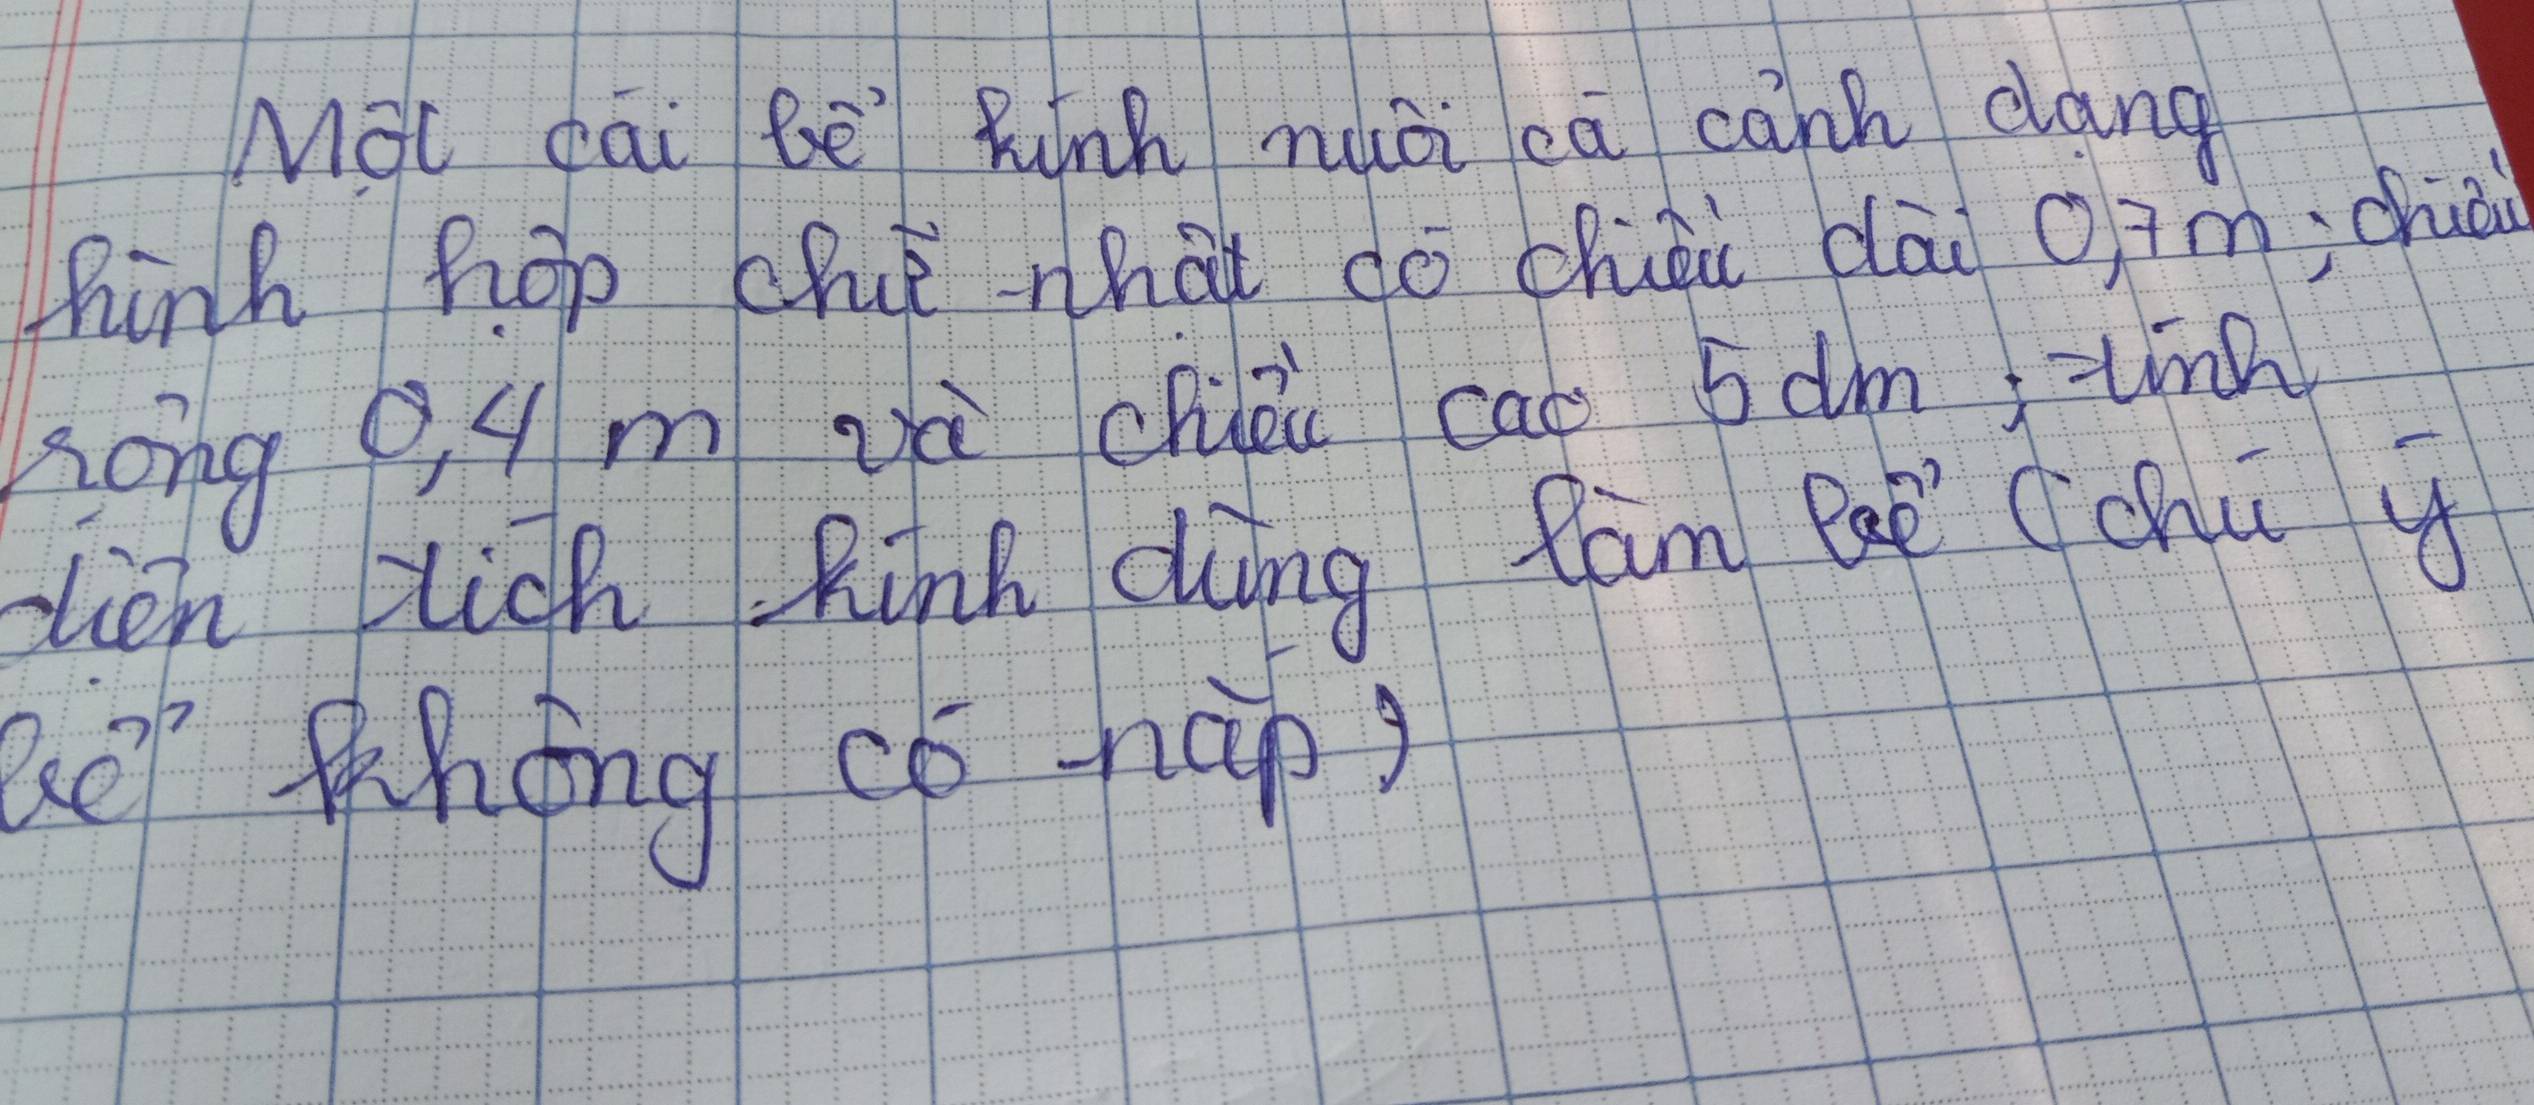 Một cái bể kính nuôi cá cảnh dạng
hình hộp chữ nhật có chiều dài 0,7m; chiều
rộng 0,4 m và chiều cao 5 dm ; tính
diện tích kính dùng làm bể ( chú ý
bể không có nắp)